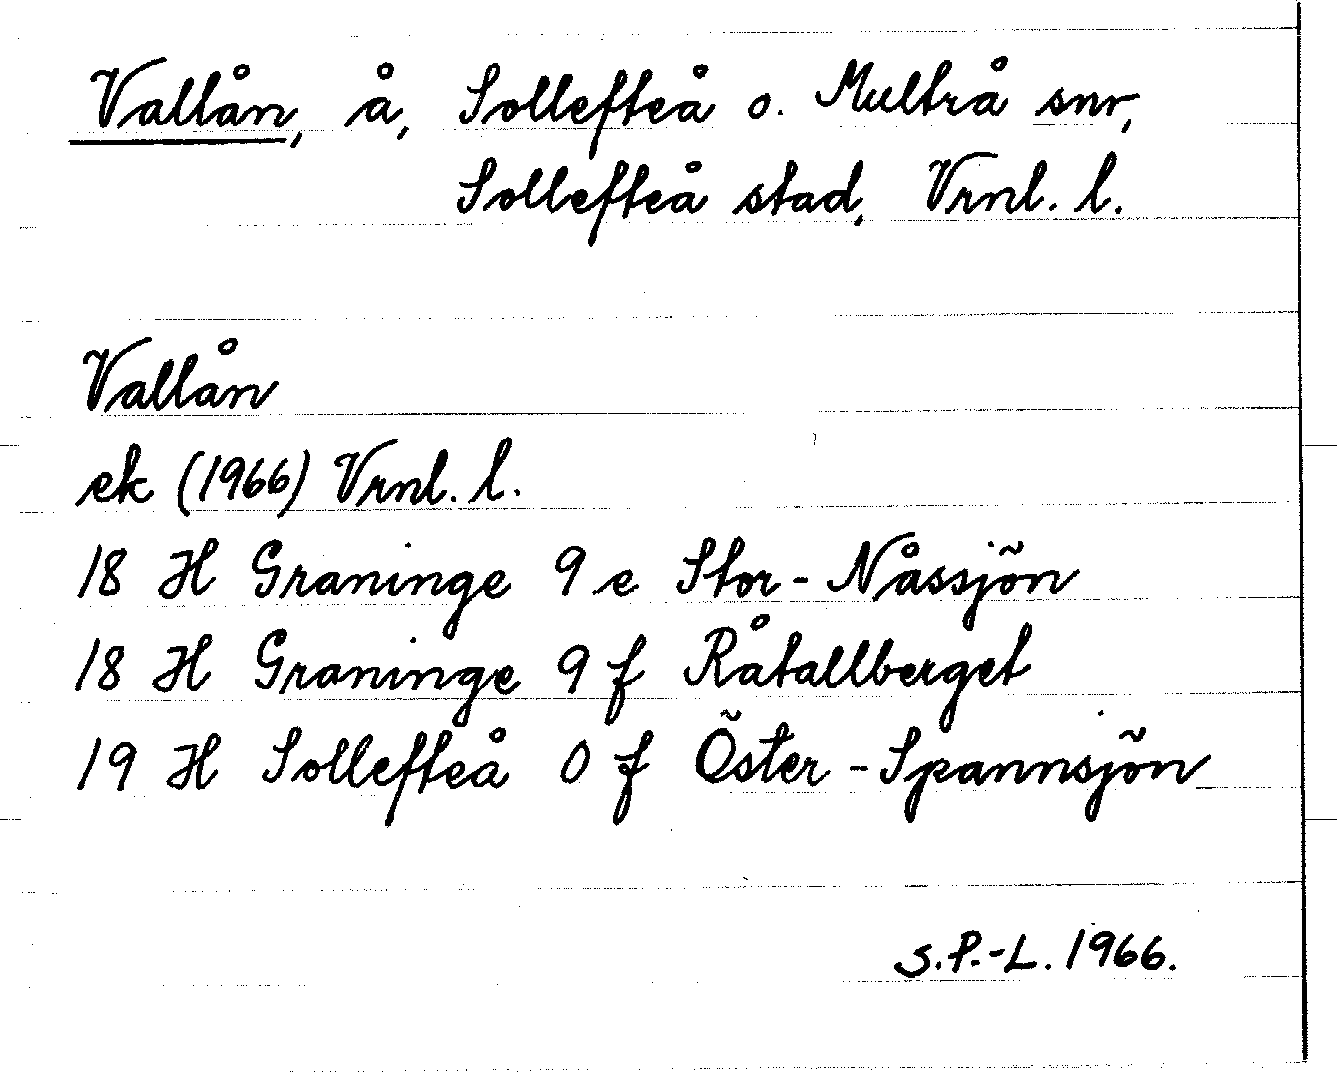 Vallån, å, Sollefteå o. Multrå snr,
Sollefteå stad, Vrnl. l.
Vallån
ek (1966) Vrnl. l.
18 H Graninge 9 e Stor-Nåssjön
18 H Graninge 9 f Råtallberget
19 H Sollefteå 0 f Öster-Spannsjön
S.P.-L. 1966.